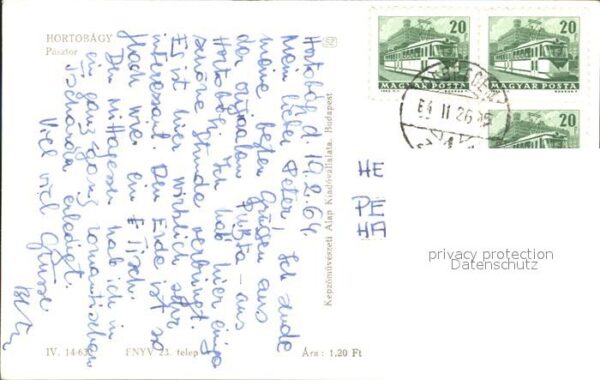 HORTOBÁGY
Pásztor
Hortobád, 19.2.64.
Mein lieber Peter, Ich sende
meine besten Grüßen aus
der orginalen Pußta – aus
Hortobágy. Ich hab hier einige
schöne Stunde verbringt.
Es ist hier wirklich sehr
interessant. Den Erde ist so
flach wie ein Tisch.
Den Mittagessen hab ich in
ein ganz ganz romantischen
Tscharda erledigt.
Viel viel Grüsse
Képzőművészeti Alap Kiadóvállalata, Budapest
IV. 14-63
FNYV 23. telep
Ára: 1,20 Ft
20
MAGYAR POSTA
20
MAGYAR POSTA
20
64 II 26
HE
PE
HA
privacy protection
Datenschutz